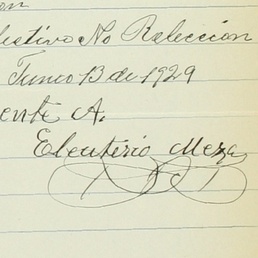 on
lectivo No Relección
Junio 13 de 1929
ente A.
Eleuterio Meza